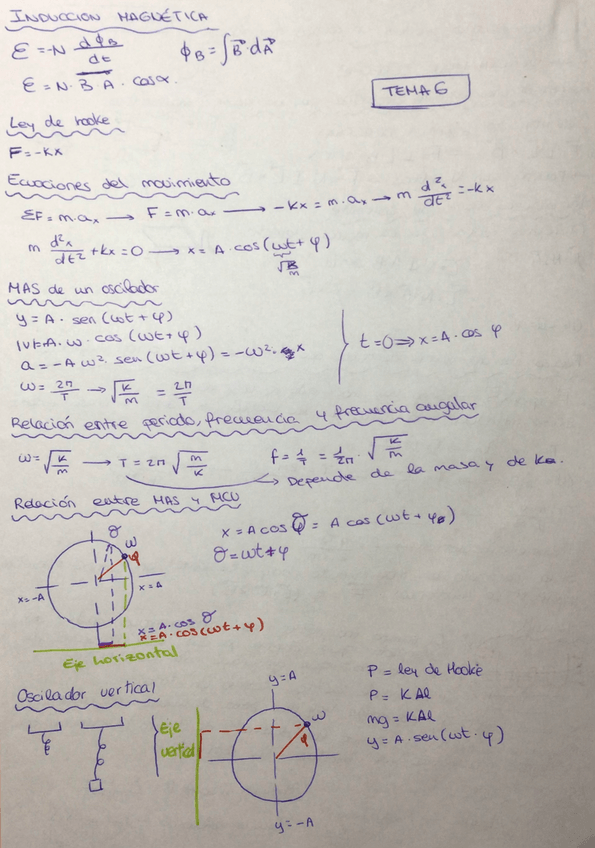 INDUCCION MAGNÉTICA
ε = -N dϕB/dt    ϕB = ∫B⃗·dA⃗
ε = N·B A · cosα.
TEMA 6
Ley de hooke
F = -kx
Ecuaciones del movimiento
ΣF = m·ax → F = m·ax → -kx = m·ax → m d²x/dt² = -kx
m d²x/dt² + kx = 0 → x = A·cos(ωt + φ)
MAS de un oscilador
y = A · sen(ωt + φ)
|v| = A·ω·cos(ωt + φ)
a = -Aω²·sen(ωt + φ) = -ω²·x
t=0 ⇒ x = A·cos φ
ω = 2π/T → √k/m = 2π/T
Relación entre periodo, frecuencia y frecuencia angular
ω = √k/m → T = 2π √m/k    f = 1/T = 1/2π · √k/m
Depende de la masa y de k.
Relación entre MAS y MCU
x = A cos θ = A cos(ωt + φ0)
θ = ωt + φ
θ
ω
φ
x=-A
x=A
x = A·cos θ
x = A·cos(ωt + φ)
Eje horizontal
Oscilador vertical
y=A
Eje vertical
ω
φ
y=-A
P = ley de Hooke
P = KΔl
mg = KΔl
y = A·sen(ωt·φ)